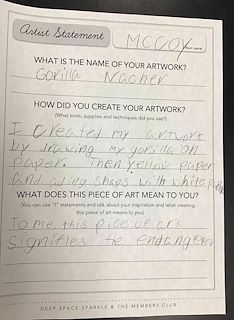 Artist Statement
MCCOY
Your name
WHAT IS THE NAME OF YOUR ARTWORK?
Gorilla Nacher
HOW DID YOU CREATE YOUR ARTWORK?
(What tools, supplies and techniques did you use?)
I created my artwork
by drawing my gorilla on
paper. Then yellow paper
and ading shaps with white
WHAT DOES THIS PIECE OF ART MEAN TO YOU?
(You can use "I" statements and talk about your inspiration and what creating
this piece of art means to you)
To me this pice of art
signifies the
DEEP SPACE SPARKLE & THE MEMBERS CLUB